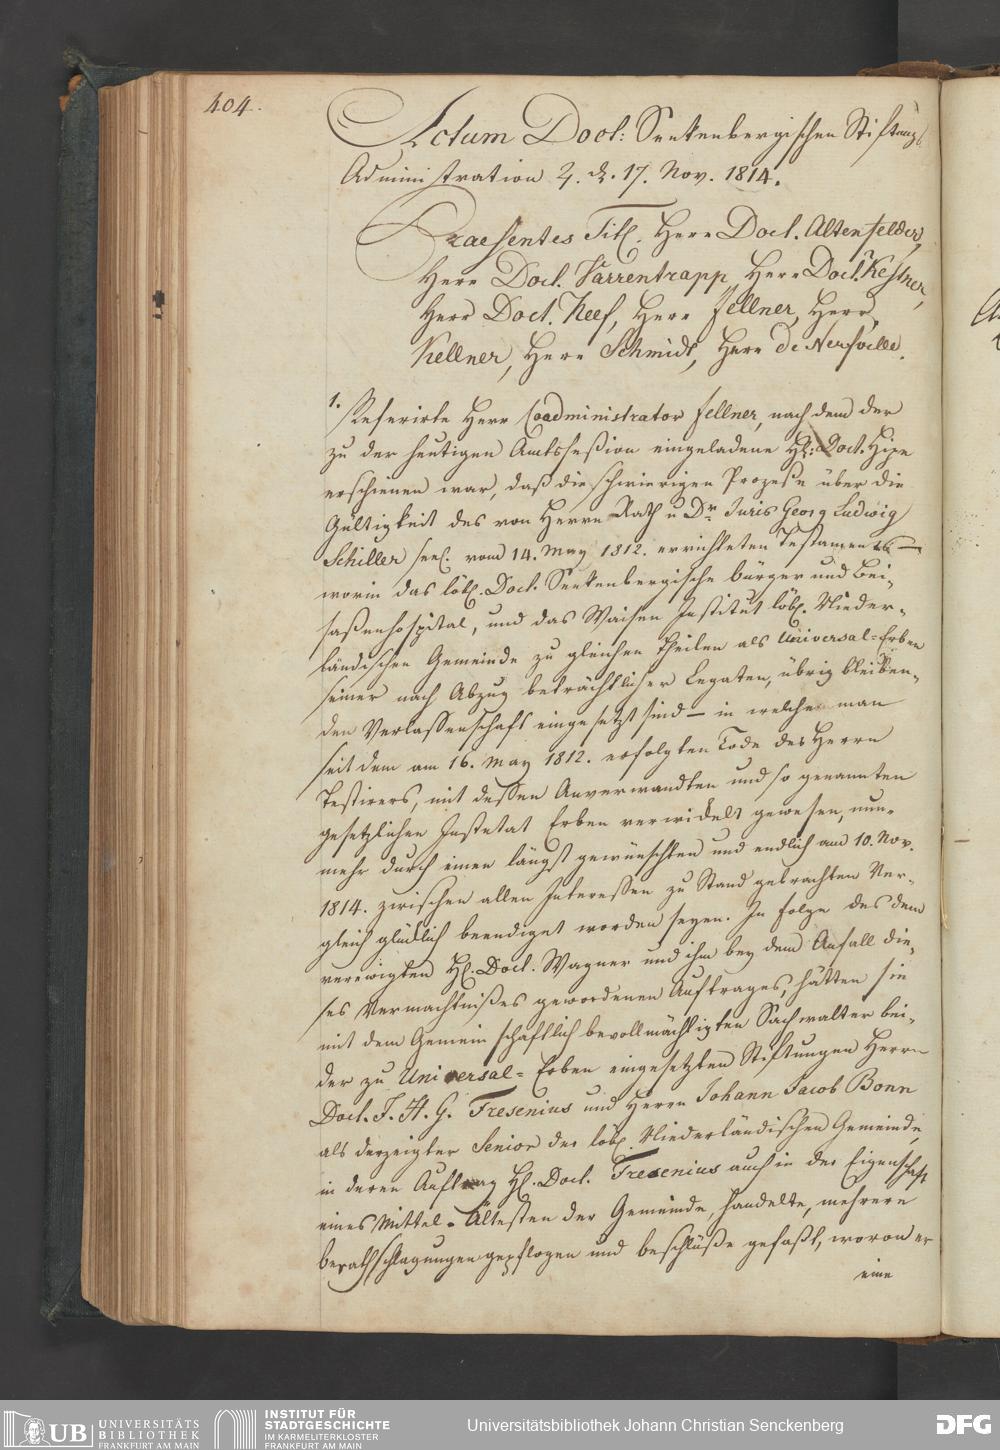 404.
Actum Doct: Senkenbergischen Stiftungs
Administration 4. d. 17. Nov. 1814.
Praesentes Titl. Herr Doct. Altenfelder,
Herr Doct. Varrentrapp, Herr Doct. Kestner,
Herr Doct. Neef, Herr Fellner, Herr
Kellner, Herr Schmidt, Herr de Neufville.
1. Referirte Herr Coadministrator Fellner, nach dem der
zu der heutigen Amtsseßion eingeladene H: Doct.
erschienen war, daß die schwierigen Prozeße über die
Gültigkeit des von Herrn Rath u Dr Juris Georg Ludwig
Schiller seel. vom 14. May 1812. errichteten Testaments —
worin das löbl. Doct. Senkenbergische bürger und Bei-
saßenhospital, und das Waisen Institut löbl. Nieder-
ländischen Gemeinde zu gleichen Theilen als Universal-Erben
seiner nach Abzug beträchtlicher Legaten, übrig bleiben-
den Verlassenschaft eingesetzt sind — in welche man
seit dem am 16. May 1812. erfolgten Tode des Herrn
Testirers, mit dessen Anverwandten und so genannten
gesetzlichen Intestat Erben verwickelt gewesen, nun-
mehr durch einen längst gewünschten und endlich am 10. Nov.
1814. zwischen allen Interessen zu Stand gebrachten Ver-
gleich glücklich beendiget worden seyen. In Folge des dem
verewigten H. Doct. Wagner und ihm bey dem Anfall die-
ses Vermächtnißes gewordenen Auftrages, hätten sie
mit dem Gemeinschaftlich bevollmächtigten Sachwalter bei-
der zu Universal-Erben eingesetzten Stiftungen Herrn
Doct. J. H. G. Fresenius und Herrn Johann Jacob Bonn
als derzeigter Senior der löbl. Niederländischen Gemeinde,
in deren Auftrag H. Doct. Fresenius auch in der Eigenschaft
eines Mittel-Ältesten der Gemeinde, handelte, mehrere
berathschlagungen gepflogen und beschlüße gefaßt, wovon er
eine
UB UNIVERSITÄTS
BIBLIOTHEK
FRANKFURT AM MAIN
INSTITUT FÜR
STADTGESCHICHTE
IM KARMELITERKLOSTER
FRANKFURT AM MAIN
Universitätsbibliothek Johann Christian Senckenberg
DFG